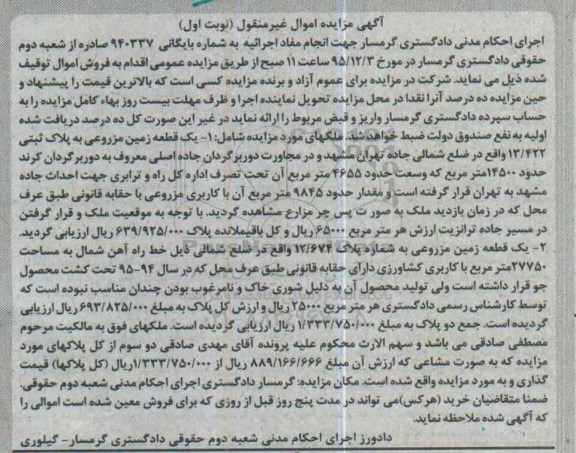 آگهی مزایده اموال غیرمنقول (نوبت اول)
اجرای احکام مدنی دادگستری گرمسار جهت انجام مفاد اجرائیه به شماره بایگانی ۹۴۰۳۳۷ صادره از شعبه دوم
حقوقی دادگستری گرمسار در مورخ ۹۵/۱۲/۳ ساعت ۱۱ صبح از طریق مزایده عمومی اقدام به فروش اموال توقیف
شده ذیل می نماید. شرکت در مزایده برای عموم آزاد و برنده مزایده کسی است که بالاترین قیمت را پیشنهاد و
حین مزایده ده درصد آنرا نقدا در محل مزایده تحویل نماینده اجرا و ظرف مهلت بیست روز بهاء کامل مزایده را به
حساب سپرده دادگستری گرمسار واریز و قبض مربوط را ارائه نماید در غیر این صورت کل ده درصد دریافت شده
اولیه به نفع صندوق دولت ضبط خواهد شد. ملکهای مورد مزایده شامل: ۱- یک قطعه زمین مزروعی به پلاک ثبتی
۱۳/۴۲۲ واقع در ضلع شمالی جاده تهران مشهد و در مجاورت دوربرگردان جاده اصلی معروف به دوربرگردان کرند
حدود ۱۴۵۰۰متر مربع که وسعت حدود ۴۶۵۵ متر مربع آن تحت تصرف اداره کل راه و ترابری جهت احداث جاده
مشهد به تهران قرار گرفته است و مقدار حدود ۹۸۴۵ متر مربع آن با کاربری مزروعی با حقابه قانونی طبق عرف
محل که در زمان بازدید ملک به صورت پس چر مزارع مشاهده گردید. با توجه به موقعیت ملک و قرار گرفتن
در مسیر جاده ترانزیت ارزش هر متر مربع ۶۵۰۰۰ ریال و کل باقیمانده پلاک ۶۳۹/۹۲۵/۰۰۰ ریال ارزیابی گردید.
۲- یک قطعه زمین مزروعی به شماره پلاک ۱۲/۶۷۴ واقع در ضلع شمالی ذیل خط راه آهن شمال به مساحت
۲۷۷۵۰متر مربع با کاربری کشاورزی دارای حقابه قانونی طبق عرف محل که در سال ۹۴-۹۵ تحت کشت محصول
جو قرار داشته است ولی تولید محصول آن به دلیل شوری خاک و نامرغوب بودن چندان مناسب نبوده است که
توسط کارشناس رسمی دادگستری هر متر مربع ۲۵۰۰۰ ریال و ارزش کل پلاک به مبلغ ۶۹۳/۸۲۵/۰۰۰ ریال ارزیابی
گردیده است. جمع دو پلاک به مبلغ ۱/۳۳۳/۷۵۰/۰۰۰ ریال ارزیابی گردیده است. ملکهای فوق به مالکیت مرحوم
مصطفی صادقی می باشد و سهم الارث محکوم علیه پرونده آقای مهدی صادقی دو سوم از کل پلاکهای مورد
مزایده که به صورت مشاعی که ارزش آن مبلغ ۸۸۹/۱۶۶/۶۶۶ ریال از ۱/۳۳۳/۷۵۰/۰۰۰ریال (کل پلاکها) قیمت
گذاری و به مورد مزایده واقع شده است. مکان مزایده: گرمسار دادگستری اجرای احکام مدنی شعبه دوم حقوقی.
ضمنا متقاضیان خرید (هرکس)می تواند در مدت پنج روز قبل از روزی که برای فروش معین شده است اموالی را
که آگهی شده ملاحظه نماید.
دادورز اجرای احکام مدنی شعبه دوم حقوقی دادگستری گرمسار- گیلوری